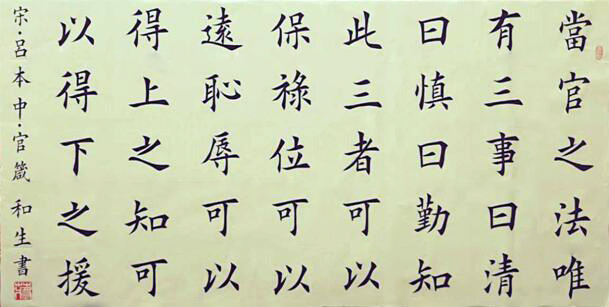 當官之法唯
有三事曰清
曰慎曰勤知
此三者可以
保祿位可以
遠恥辱可以
得上之知可
以得下之援
宋·呂本中·官箴 和生書